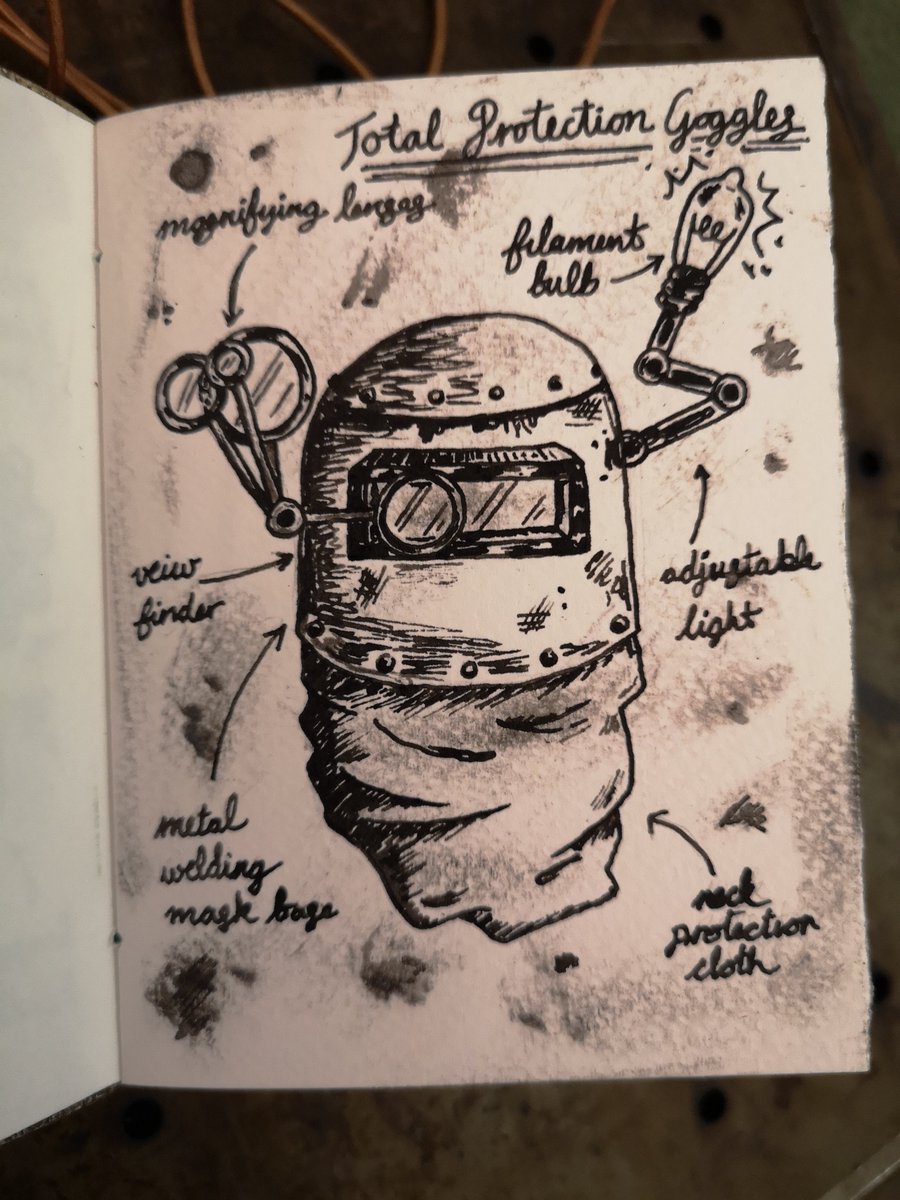 Total Protection Goggles
magnifying lenses
filament
bulb
veiw
finder
adjustable
light
metal
welding
mask base
neck
protection
cloth